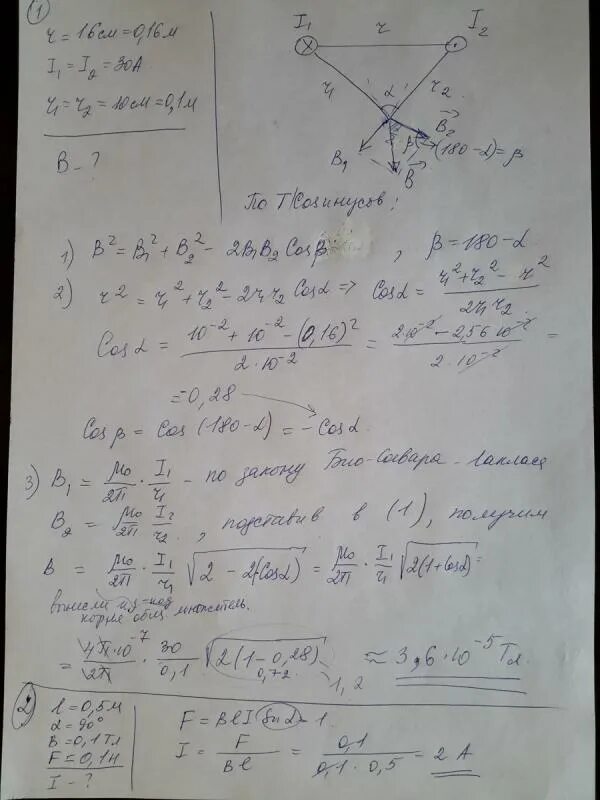 1
r = 16см = 0,16м
I₁ = I₂ = 30А
r₁ = r₂ = 10см = 0,1м
B - ?
I₁ r I₂
r₁ α r₂
B₁ B⃗ B⃗₂ β (180-α) = β
По Т/Косинусов:
1) B² = B₁² + B₂² - 2B₁B₂ Cosβ , β = 180-α
2) r² = r₁² + r₂² - 2r₁r₂ Cosα => Cosα = (r₁² + r₂² - r²) / (2r₁r₂)
Cosα = (10⁻² + 10⁻² - (0,16)²) / (2·10⁻²) = (2·10⁻² - 2,56·10⁻²) / (2·10⁻²) =
= -0,28
Cosβ = Cos(180-α) = -Cosα.
3) B₁ = μ₀/2π · I₁/r₁ - по закону Био-Савара-Лапласа
B₂ = μ₀/2π · I₂/r₂ , подставив в (1), получим
B = μ₀/2π · I₁/r₁ √(2 - 2(-Cosα)) = μ₀/2π · I₁/r₁ √(2(1+cosα)) =
вынесли из-под
корня общ. множитель.
= 4π·10⁻⁷/2π · 30/0,1 √(2(1-0,28)) ≈ 3,6·10⁻⁵ Тл.
0,72 1,2
2
l = 0,5м
α = 90°
B = 0,1Тл
F = 0,1н
I - ?
F = BlI sinα = 1
I = F / Bl = 0,1 / (0,1 · 0,5) = 2 А